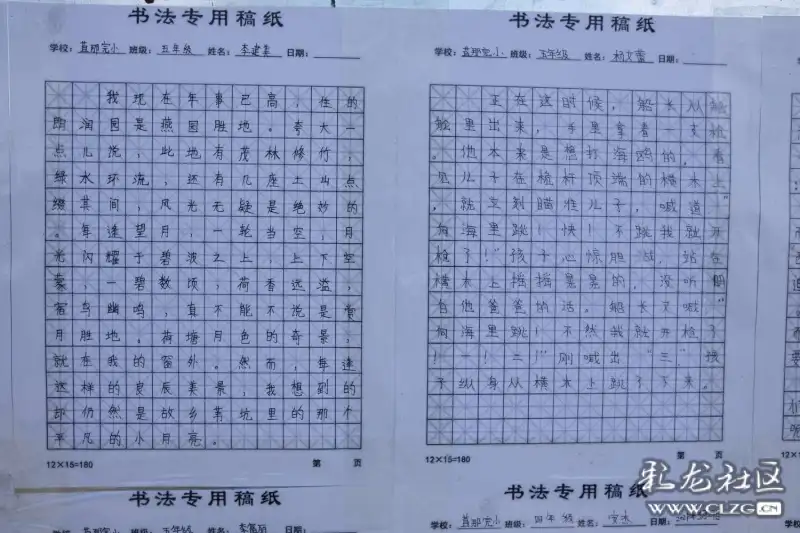 书法专用稿纸
学校：直那完小 班级：五年级 姓名：李建 日期：
我现在年事已高，住的
朗润园是燕园胜地。夸大一
点儿说，此地有茂林修竹，
绿水环流，还有几座土山点
缀其间，风光无疑是绝妙的
。每逢望月，一轮当空，月
光闪耀于碧波之上，上下空
蒙，一碧数顷，荷香远溢，
宿鸟幽鸣，真不能不说是赏
月胜地。荷塘月色的奇景，
就在我的窗外。然而，每逢
这样的良辰美景，我想到的
却仍然是故乡苇坑里的那个
平凡的小月亮。
12×15=180 第 页
书法专用稿纸
学校：直那完小 班级：五年级 姓名：杨文 日期：
正在这时候，船长从船
舱里出来，手里拿着一支枪
。他本来是想打海鸥的，看
见儿子在桅杆顶端的横木上
，就立刻瞄准儿子，喊道：“
向海里跳！快！不跳我就开
枪了！”孩子心惊胆战，站在
横木上摇摇晃晃的，没听明
白他爸爸的话。船长又喊：“
向海里跳！不然我就开枪了
！一！二！”刚喊出“三”，孩
子纵身从横木上跳了下来。
12×15=180 第 页
书法专用稿纸
学校：直那完小 班级：五年级 姓名：李 日期：
书法专用稿纸
学校：直那完小 班级：四年级 姓名： 日期：
彩龙社区
WWW.CLZG.CN